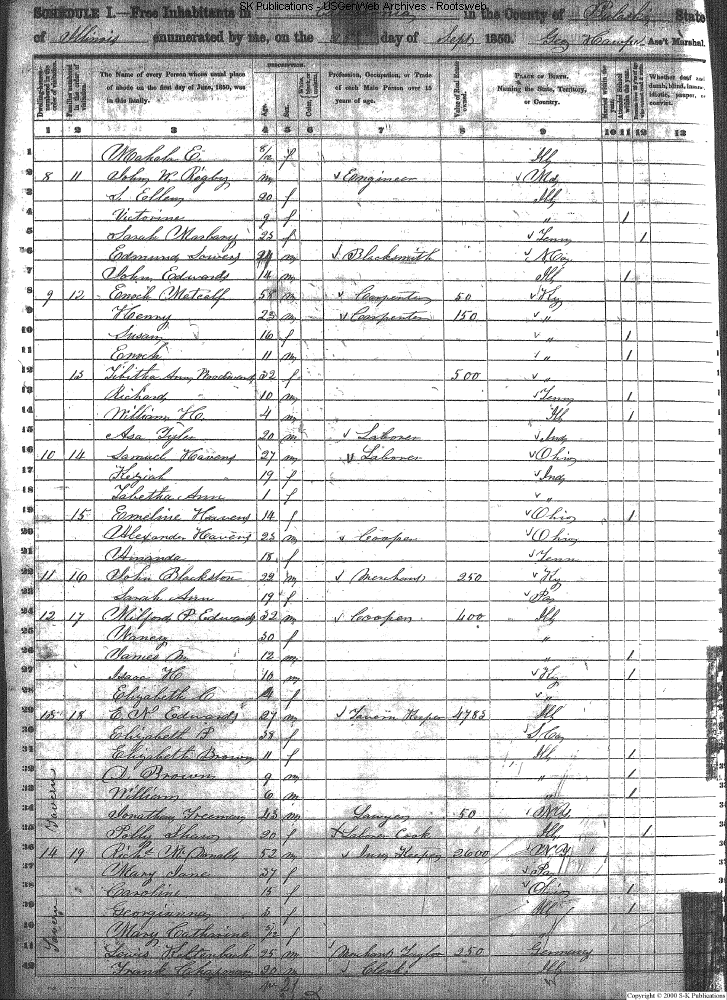 SK Publications - USGenWeb Archives - Rootsweb
SCHEDULE I.—Free Inhabitants in in the County of Pulaski State
of Illinois enumerated by me, on the day of Sept 1850. Ass't Marshal.
DESCRIPTION.
The Name of every Person whose usual place of abode on the first day of June, 1850, was in this family.
Age.
Sex.
Profession, Occupation, or Trade of each Male Person over 15 years of age.
Value of Real Estate owned.
PLACE OF BIRTH. Naming the State, Territory, or Country.
Whether deaf and dumb, blind, insane, idiotic, pauper, or convict.
1 2 3 4 5 6 7 8 9 10 11 12 13
1 Mahala E. 8/12 f Ill
2 8 11 John W. Rigby m Engineer Md
3 S. Ellen 20 f Ill
4 Victorine 9 f " 1
5 Sarah 23 f Tenn 1
6 Edmund Sowers 24 m Blacksmith N.Ca
7 John Edwards 14 m Ill 1
8 9 12 Enoch Metcalf 58 m Carpenter 50 Ky
9 Henry 23 m Carpenter 150 "
10 Susan 16 f " 1
11 Enoch 11 m " 1
12 13 Tibitha Ann 32 f 500 "
13 Richard 10 m Tenn 1
14 William H. 4 m Ill 1
15 Asa Tyler 20 m Laborer Ind
16 10 14 Samuel Havens 27 m Laborer Ohio
17 Keziah 19 f Ind
18 Tabetha Ann 1 f "
19 15 Emeline Havens 14 f Ohio 1
20 Alexander Havens 23 m Cooper Ohio
21 Amanda 18 f Tenn
22 11 16 John Blackston 22 m Merchant 250 Ky
23 Sarah Ann 19 f Pa
24 12 17 Milford P. Edwards 32 m Cooper 400 Ill
25 Nancy 30 f "
26 James M. 12 m " 1
27 Isaac H 10 m Ky 1
28 Elizabeth C. 4 f "
29 13 18 E N Edwards 27 m Tavern Keeper 4783 Ill
30 Elizabeth P. 38 f S.Ca
31 Elizabeth Brown 11 f Ill 1
32 D. Brown 9 m " 1
33 William 6 m " 1
34 Tavern Jonathan Freeman 43 m Lawyer 50
35 Polly Shaw 20 f Cook Ill 1
36 14 19 Richd McDonald 52 m Inn Keeper 2600
37 Mary Jane 37 f Pa
38 Caroline 13 f Ohio 1
39 Georgianna 5 f Ill 1
40 Tavern Mary Catharine 5/12 f "
41 Lewis 25 m Merchant Taylor 250 Germany
42 Frank Chapman 20 m Clerk Ill
Copyright © 2000 S-K Publications